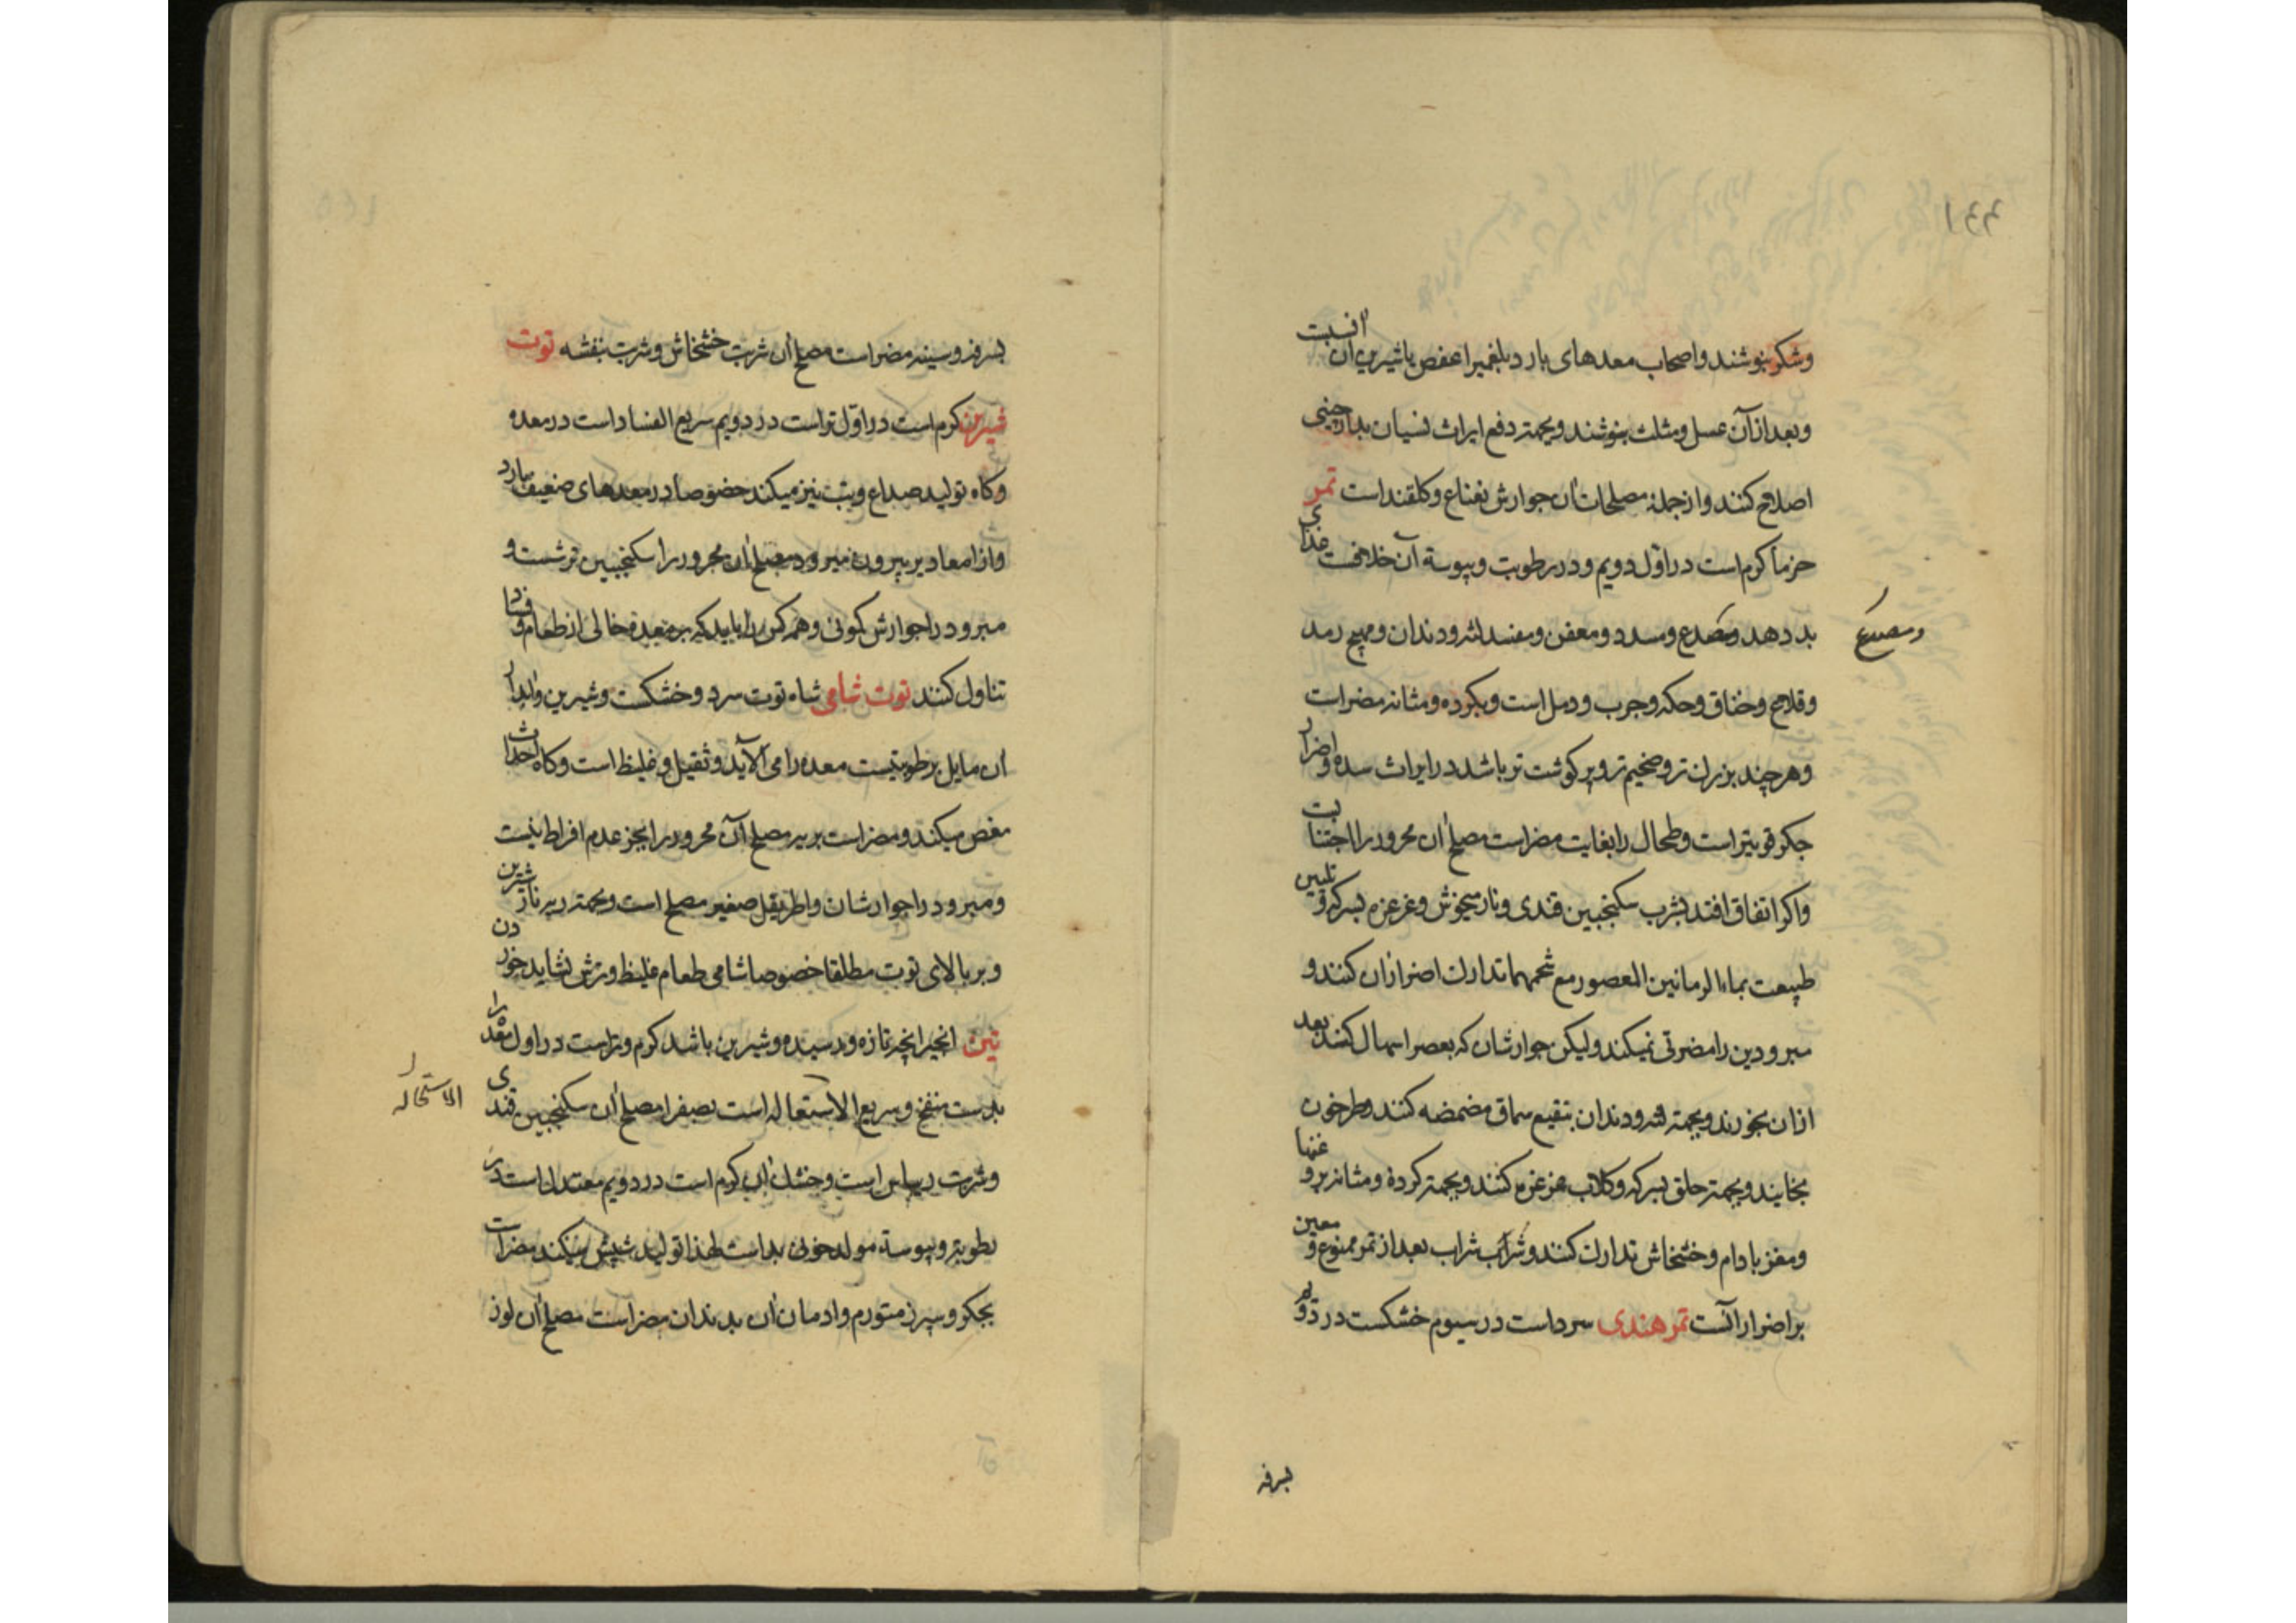 ۱۴۴
وشکر بنوشند واصحاب معدهای بارد بلغمیرا عفص یا شیرین آن افیت
وبعد از آن عسل ومثلث بنوشند وبجهته دفع ایراث نسیان بدارچینی
اصلاح کنند واز جمله مصلحات ان جوارش نعناع وکلقند است تمر
خرما کرم است در اول دویم ودر رطوبت ویبوسة آن خلافست غذای
بد دهد ومصدع ومسدد ومعفن ومفسد لثه ودندان ومهیج رمد
ومصدع
وقلاع وخناق وحکه وجرب ودمل است وبکرده ومثانه مضر است
وهر چند بزرک تر وضخیم تر وپر کوشت تر باشد در ایراث سده واضرار
جکر قویتر است وطحال را بغایت مضر است مصلح ان محرور را اجتنابست
واکر اتفاق افتد بشرب سکنجبین قندی ونار میخوش وغرغره بسرکه وتلیین
طبیعت بماء الرمانین العصور مع شحمهما تدارک اضرار ان کنند و
مبرودین را مضرتی نمیکند ولیکن جوارشان که بعصر اسهال کنند بعد
ازان بخورند وبجهته لثه ودندان بنقیع سماق مضمضه کنند وطرخون
بخایند وبجهته حلق بسرکه وکلاب غرغره کنند وبجهته کرده ومثانه
ومغز بادام وخشخاش تدارک کنند وشراب شراب بعد از تمر ممنوع ومعین
بر اضرار آنست تمر هندی سرد است در سیوم خشکست در دوم
بسرفه
بسرفه وسینه مضر است مصلح ان شربت خشخاش وشربت بنفشه توت
شیرین کرم است در اول تر است در دویم سریع الفساد است در معده
وکاه تولید صداع وتب نیز میکند خصوصا در معدهای ضعیف بارد
واز امعا دیر بیرون میرود مصلح ان محرور را سکنجبین ترشست و
مبرود را جوارش کمونی وهمه کس را باید که بر معده خالی از طعام وفساد
تناول کنند توت شامی شاه توت سرد وخشکست وشیرین وابدار
ان مایل برطوبتیست معده را می آلاید وثقیل وغلیظ است وکاه احداث
مغص میکند ومضر است بریه مصلح آن محرور را بجز عدم افراط نیست
ومبرود را جوارشان واطریفل صغیر مصلح است وبجهته ریه نار شیرین
وبر بالای توت مطلقا خصوصا شامی طعام غلیظ وترش نشاید خوردن
تین انجیر انچه تازه ورسیده وشیرین باشد کرم وتر است در اول معده را
بد ست منفخ وسریع الاستعاله است بصفرا مصلح ان سکنجبین قندی
الاستحاله
وشربت ریباس است وخشک ان کرم است در دویم معتدل است در
رطوبته ویبوسة مولد خون بد است لهذا تولید شپش میکند مضر است
بجکر وسپرز متورم وادمان ان بدندان مضر است مصلح ان لوز